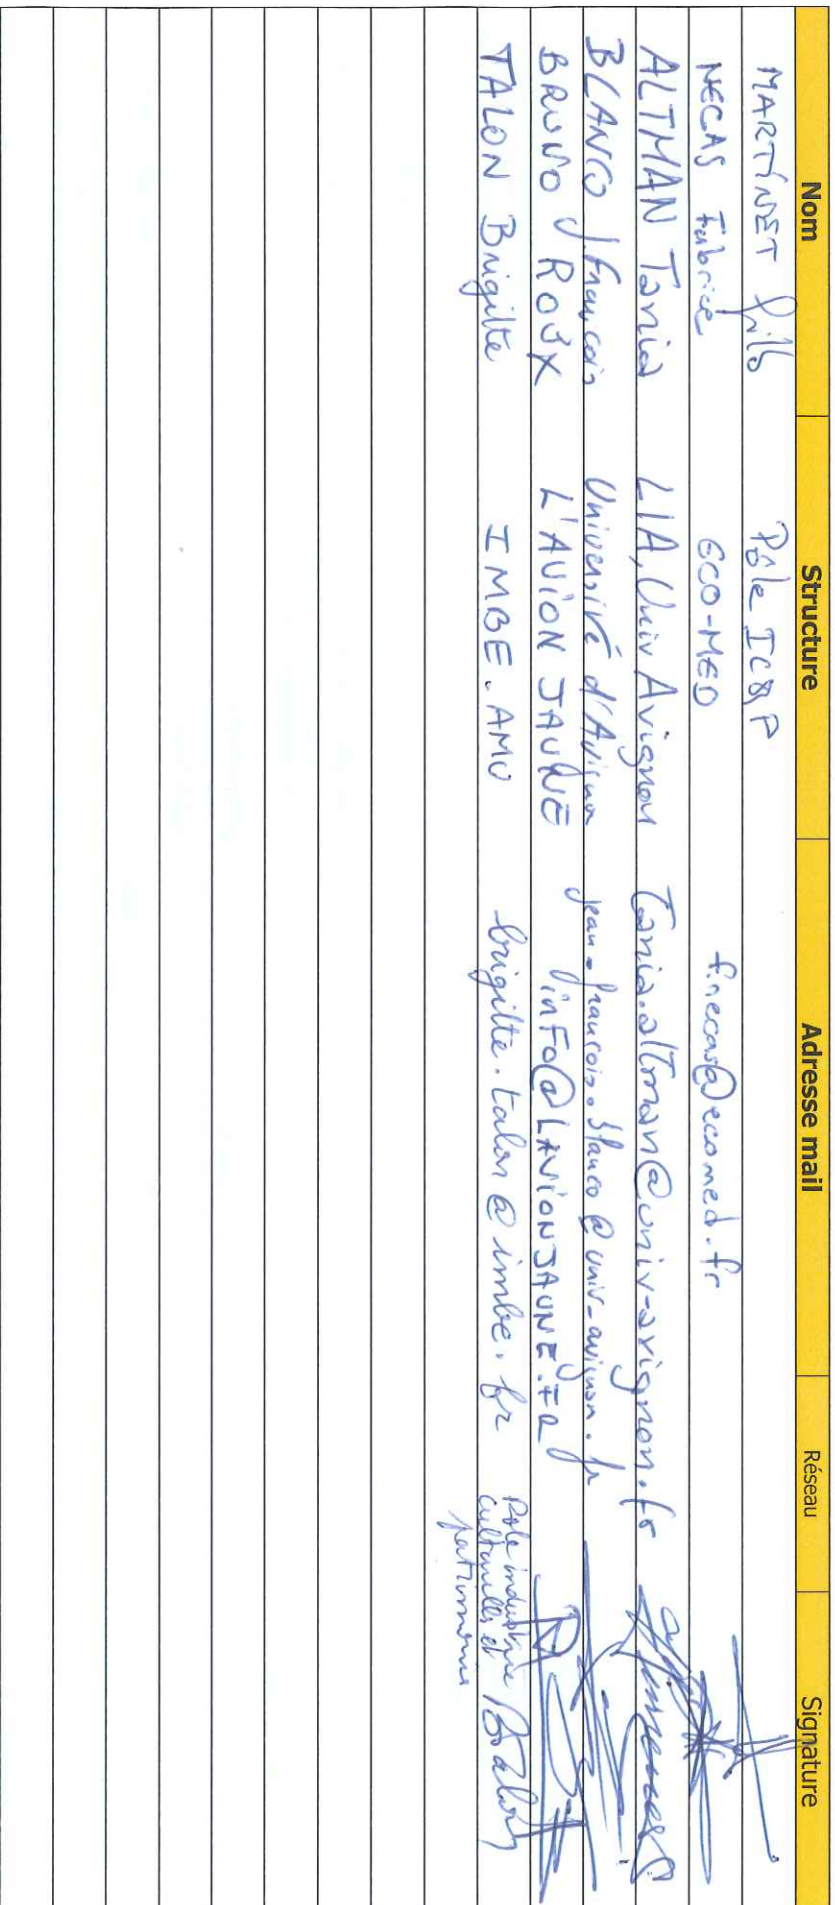 Nom Structure Adresse mail Réseau Signature
MARTINET Pôle IC&P
NECAS Fabrice ECO-MED f.necas@ecomed.fr
ALTMAN Tania LIA, Univ Avignon Tania.altman@univ-avignon.fr
BLANCO J. François Université d'Avignon jean-francois.blanco@univ-avignon.fr
BRUNO ROUX L'AVION JAUNE inFo@LAVIONJAUNE.FR
TALON Brigitte IMBE. AMU brigitte.talon@imbe.fr Pôle industrie
culturelles et
patrimoine